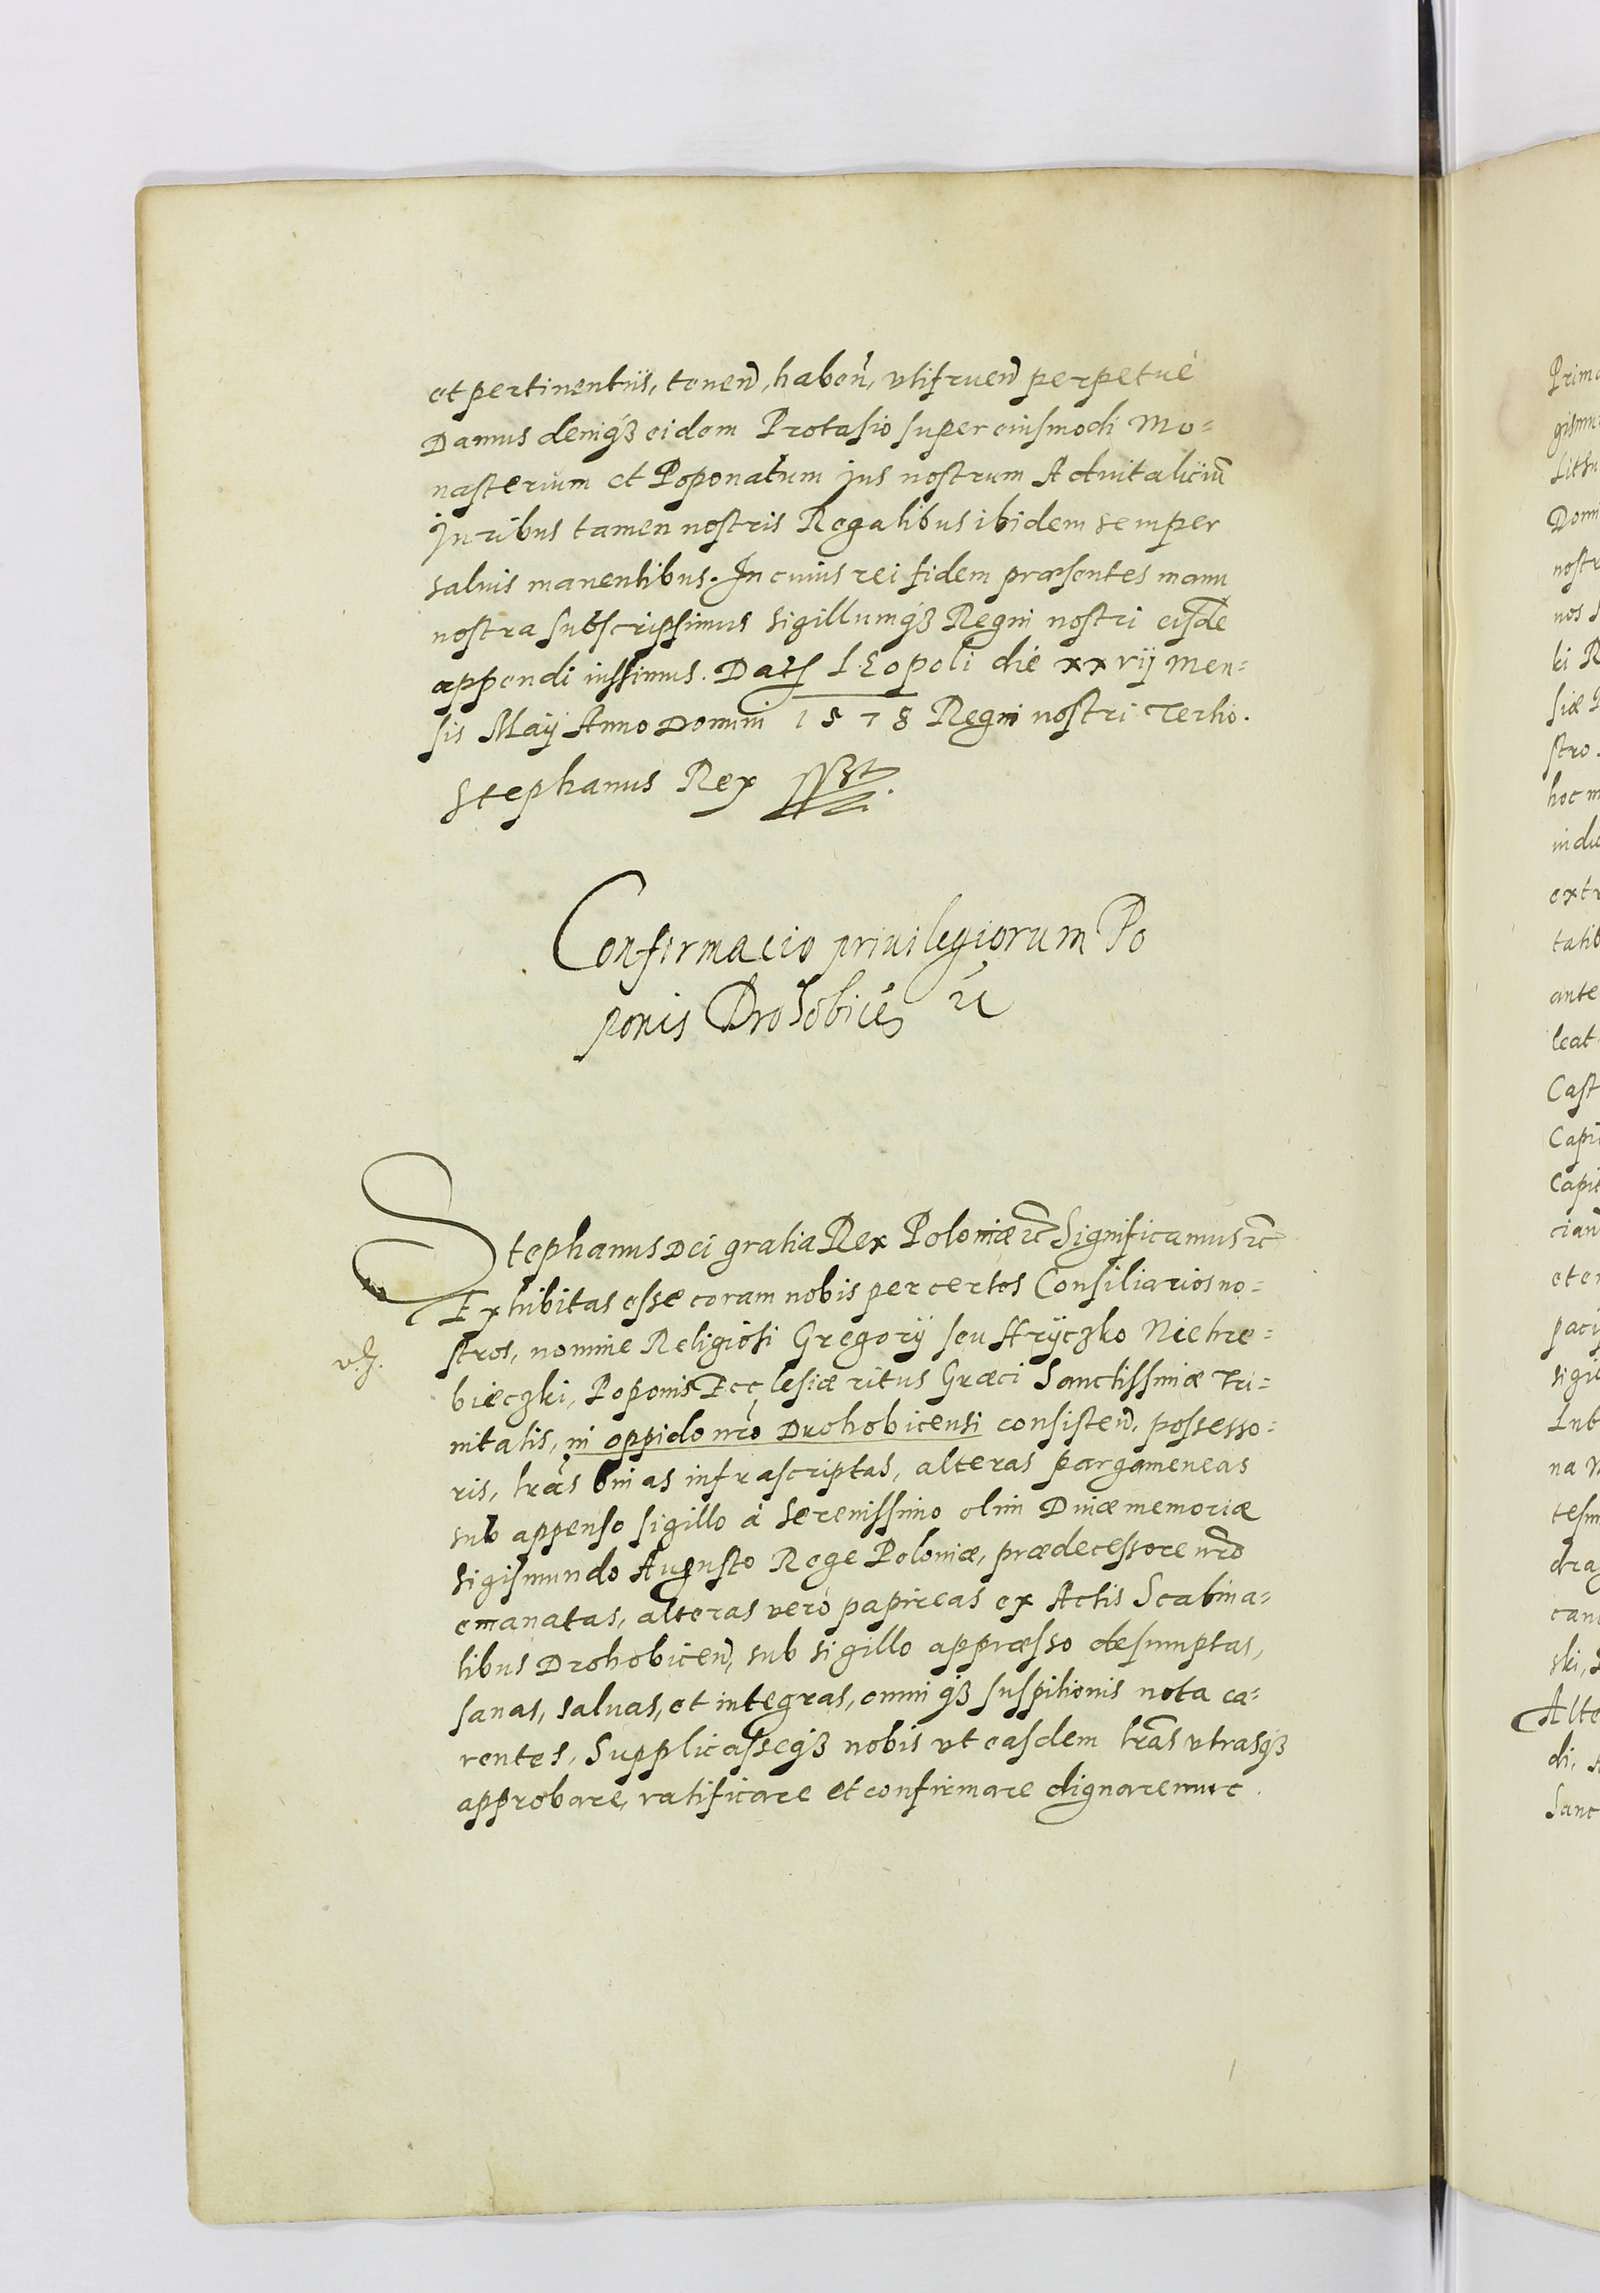 et pertinentiis, tenend, haben, utifruend perpetuè
Damus deniqȝ eidem Protasio super eiusmodi Mo=
nasterium et Poponatum jus nostrum Advitaliciū
Juribus tamen nostris Regalibus ibidem semper
saluis manentibus. In cuius rei fidem præsentes manu
nostra subscripsimus sigillumqȝ Regni nostri eisdē
appendi iussimus. Dat Leopoli die xxvij Men=
sis Maij Anno Domini 1578 Regni nostri Tertio.
Stephanus Rex
Confirmacio priuilegiorum Po
ponis Drohobicēn
Stephanus Dei gratia Rex Poloniæ etc Significamus etc
Exhibitas esse coram nobis per certos Consiliarios no=
stros, nomine Religiosi Gregorij seu Hryczko Niehre=
bieczki, Poponis Ecclesiæ ritus Græci Sanctissimæ Tri=
nitatis, in oppido nrō Drohobicensi consisten, possesso=
ris, lrās binas infrascriptas, alteras pargameneas
sub appenso sigillo à Serenissimo olim Diuæ memoriæ
Sigismundo Augusto Rege Poloniæ, prædecessore nrō
emanatas, alteras verò papireas ex Actis Scabina=
libus Drohobicen, sub sigillo appræsso desumptas,
sanas, saluas, et integras, omni qȝ suspitionis nota ca=
rentes, Supplicasseqȝ nobis vt easdem lrās vtrasqȝ
approbare, ratificare et confirmare dignaremur.